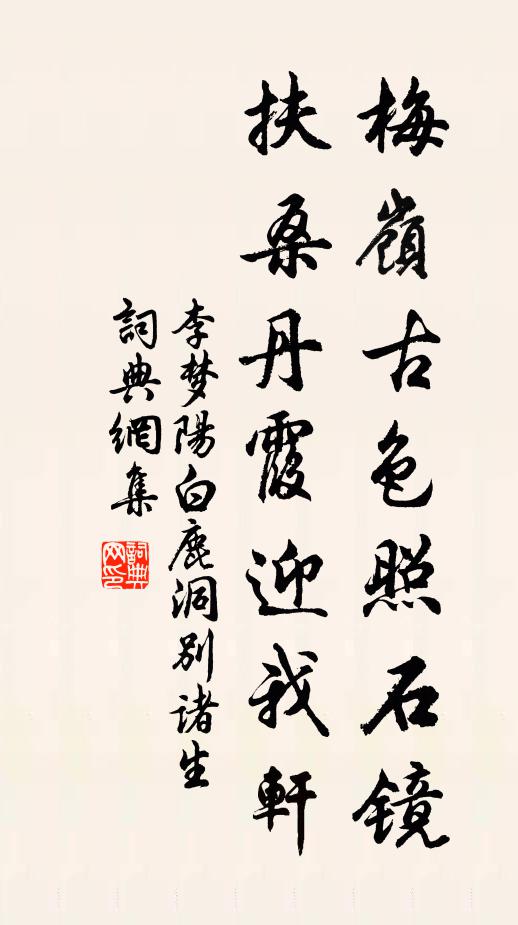 梅嶺古色照石镜
扶桑丹霞迎我軒
李梦陽白鹿洞别诸生
詞典網集
詞典网印